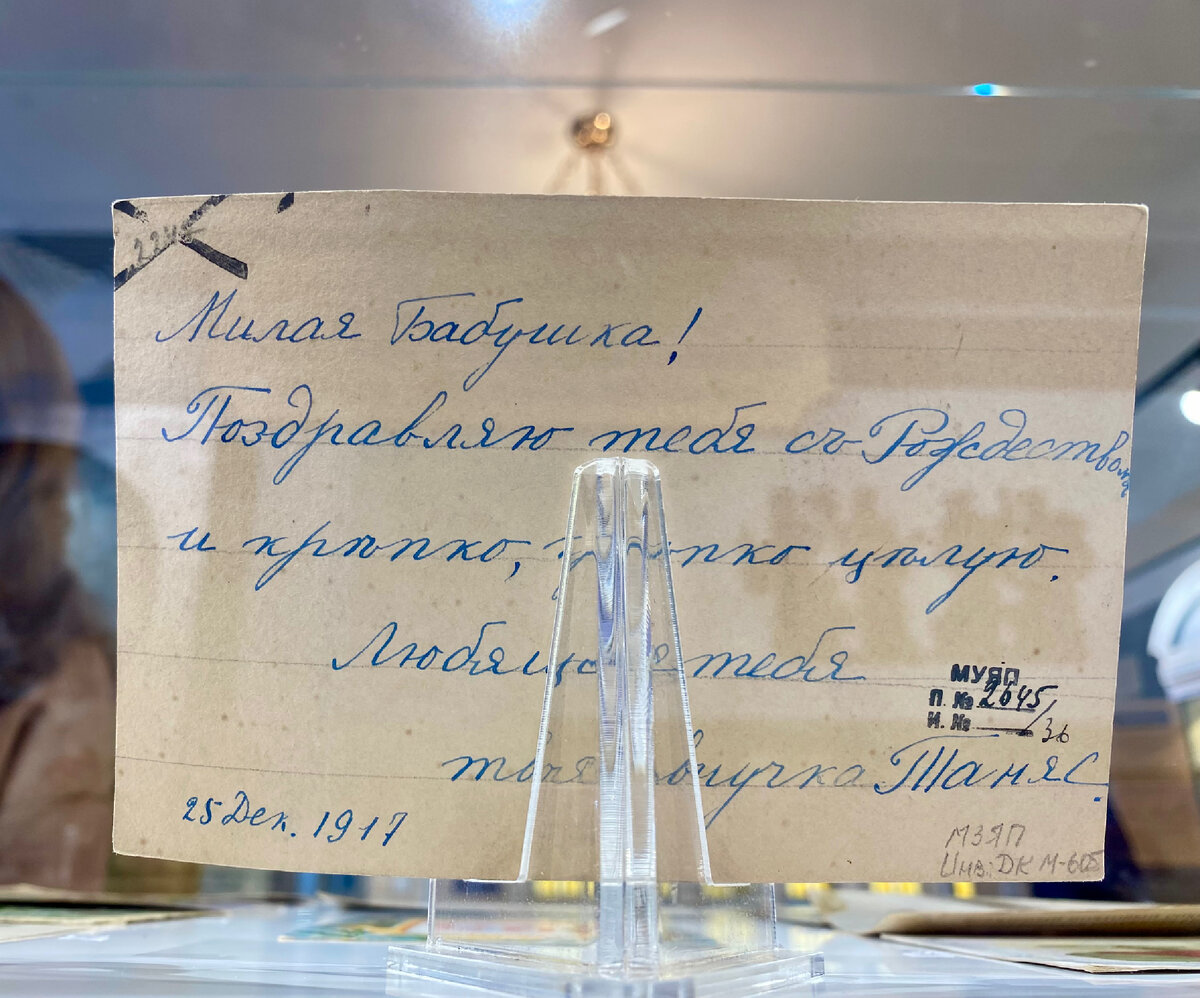 224
Милая Бабушка!
Поздравляю тебя съ Рождествомъ
и крѣпко, крѣпко цѣлую.
Любящая тебя
твоя внучка Таня С.
25 Дек. 1917
МУЯП
П. № 2645/36
И. №
МЗЯП
Инв: ДКМ-605